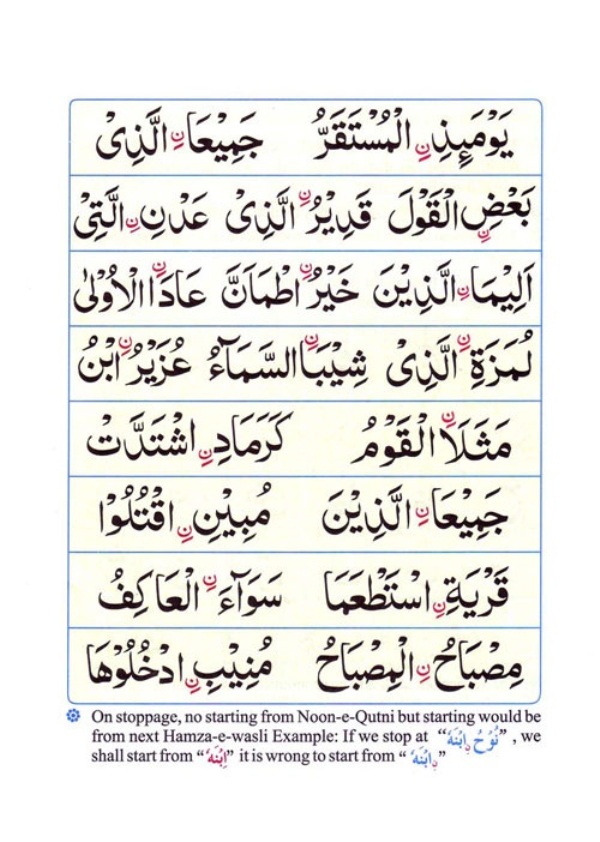 يَوْمَئِذِ نِ الْمُسْتَقَرُّ جَمِيْعَا نِ الَّذِىْ
بَعْضِ نِ الْقَوْلَ قَدِيْرُ نِ الَّذِىْ عَدْنِ نِ الَّتِىْ
اَلِيْمَا نِ الَّذِيْنَ خَيْرُ نِ اطْمَاَنَّ عَادَا نِ الْاُوْلٰى
لُمَزَةِ نِ الَّذِىْ شِيْبَا نِ السَّمَآءُ عُزَيْرُ نِ ابْنُ
مَثَلَا نِ الْقَوْمُ كَرَمَادِ نِ اشْتَدَّتْ
جَمِيْعَا نِ الَّذِيْنَ مُبِيْنِ نِ اقْتُلُوْا
قَرْيَةِ نِ اسْتَطْعَمَا سَوَآءَ نِ الْعَاكِفُ
مِصْبَاحُ نِ الْمِصْبَاحُ مُنِيْبِ نِ ادْخُلُوْهَا
On stoppage, no starting from Noon-e-Qutni but starting would be
from next Hamza-e-wasli Example: If we stop at “نُوْحُ نِ ابْنَهٗ” , we
shall start from “اِبْنَهٗ” it is wrong to start from “نِ ابْنَهٗ”